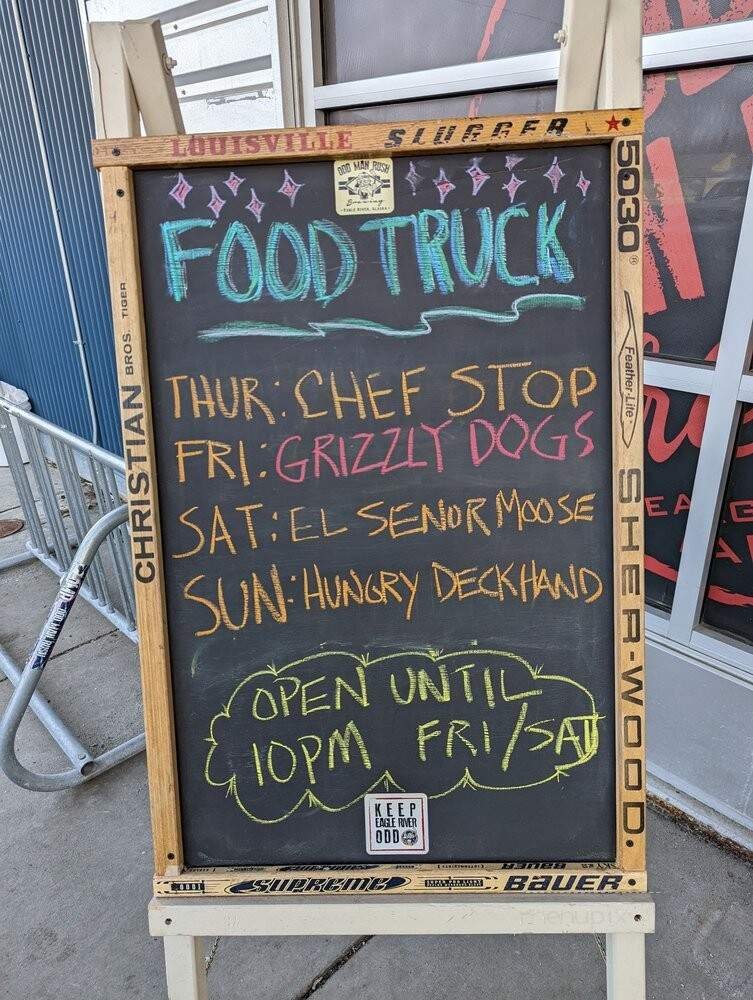 LOUISVILLE SLUGGER
ODD MAN RUSH
Brewing
EAGLE RIVER, ALASKA
5030
FOOD TRUCK
CHRISTIAN BROS. TIGER
Feather-Lite
SHER-WOOD
THUR: CHEF STOP
FRI: GRIZZLY DOGS
SAT: EL SENOR MOOSE
SUN: HUNGRY DECKHAND
OPEN UNTIL
10PM FRI/SAT
KEEP
EAGLE RIVER
ODD
SUPREME
BAUER
menupix